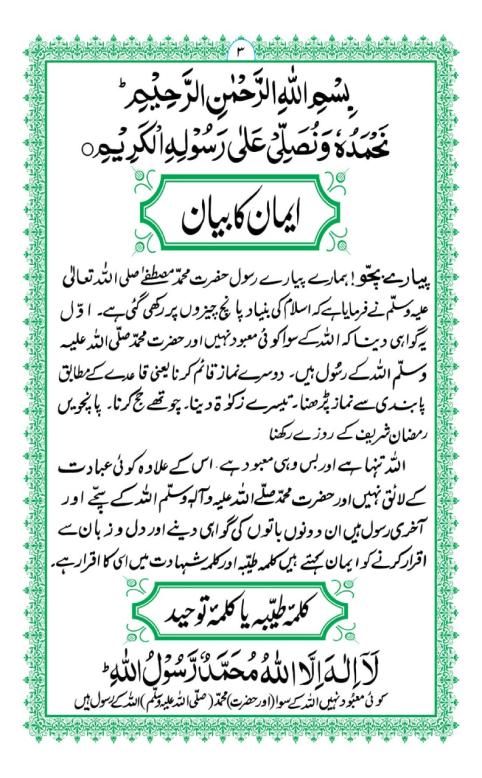 ۳
بِسْمِ اللهِ الرَّحْمٰنِ الرَّحِیْمِ ؕ
نَحْمَدُہٗ وَنُصَلِّیْ عَلٰی رَسُوْلِہِ الْکَرِیْمِ ○
ایمان کا بیان
پیارے بچّو! ہمارے پیارے رسول حضرت محمّد مصطفےٰ صلی اللہ تعالیٰ
علیہ وسلّم نے فرمایا ہے کہ اسلام کی بنیاد پانچ چیزوں پر رکھی گئی ہے۔ اوّل
یہ گواہی دینا کہ اللہ کے سوا کوئی معبود نہیں اور حضرت محمّد صلّی اللہ علیہ
وسلّم اللہ کے رسُول ہیں۔ دوسرے نماز قائم کرنا یعنی قاعدے کے مطابق
پابندی سے نماز پڑھنا۔ تیسرے زکوٰة دینا۔ چوتھے حج کرنا۔ پانچویں
رمضان شریف کے روزے رکھنا
اللہ تنہا ہے اور بس وہی معبود ہے۔ اس کے علاوہ کوئی عبادت
کے لائق نہیں اور حضرت محمّد صلے اللہ علیہ و آلہٖ وسلّم اللہ کے سچّے اور
آخری رسول ہیں ان دونوں باتوں کی گواہی دینے اور دل و زبان سے
اقرار کرنے کو ایمان کہتے ہیں کلمہ طیّبہ اور کلمہ شہادت میں اسی کا اقرار ہے۔
کلمۂ طیّبہ یا کلمۂ توحید
لَآ اِلٰہَ اِلَّا اللهُ مُحَمَّدٌ رَّسُوْلُ اللهِ ؕ
کوئی معبُود نہیں اللہ کے سوا (اور حضرت) محمّد (صلی اللہ علیہ وسلّم) اللہ کے رسول ہیں